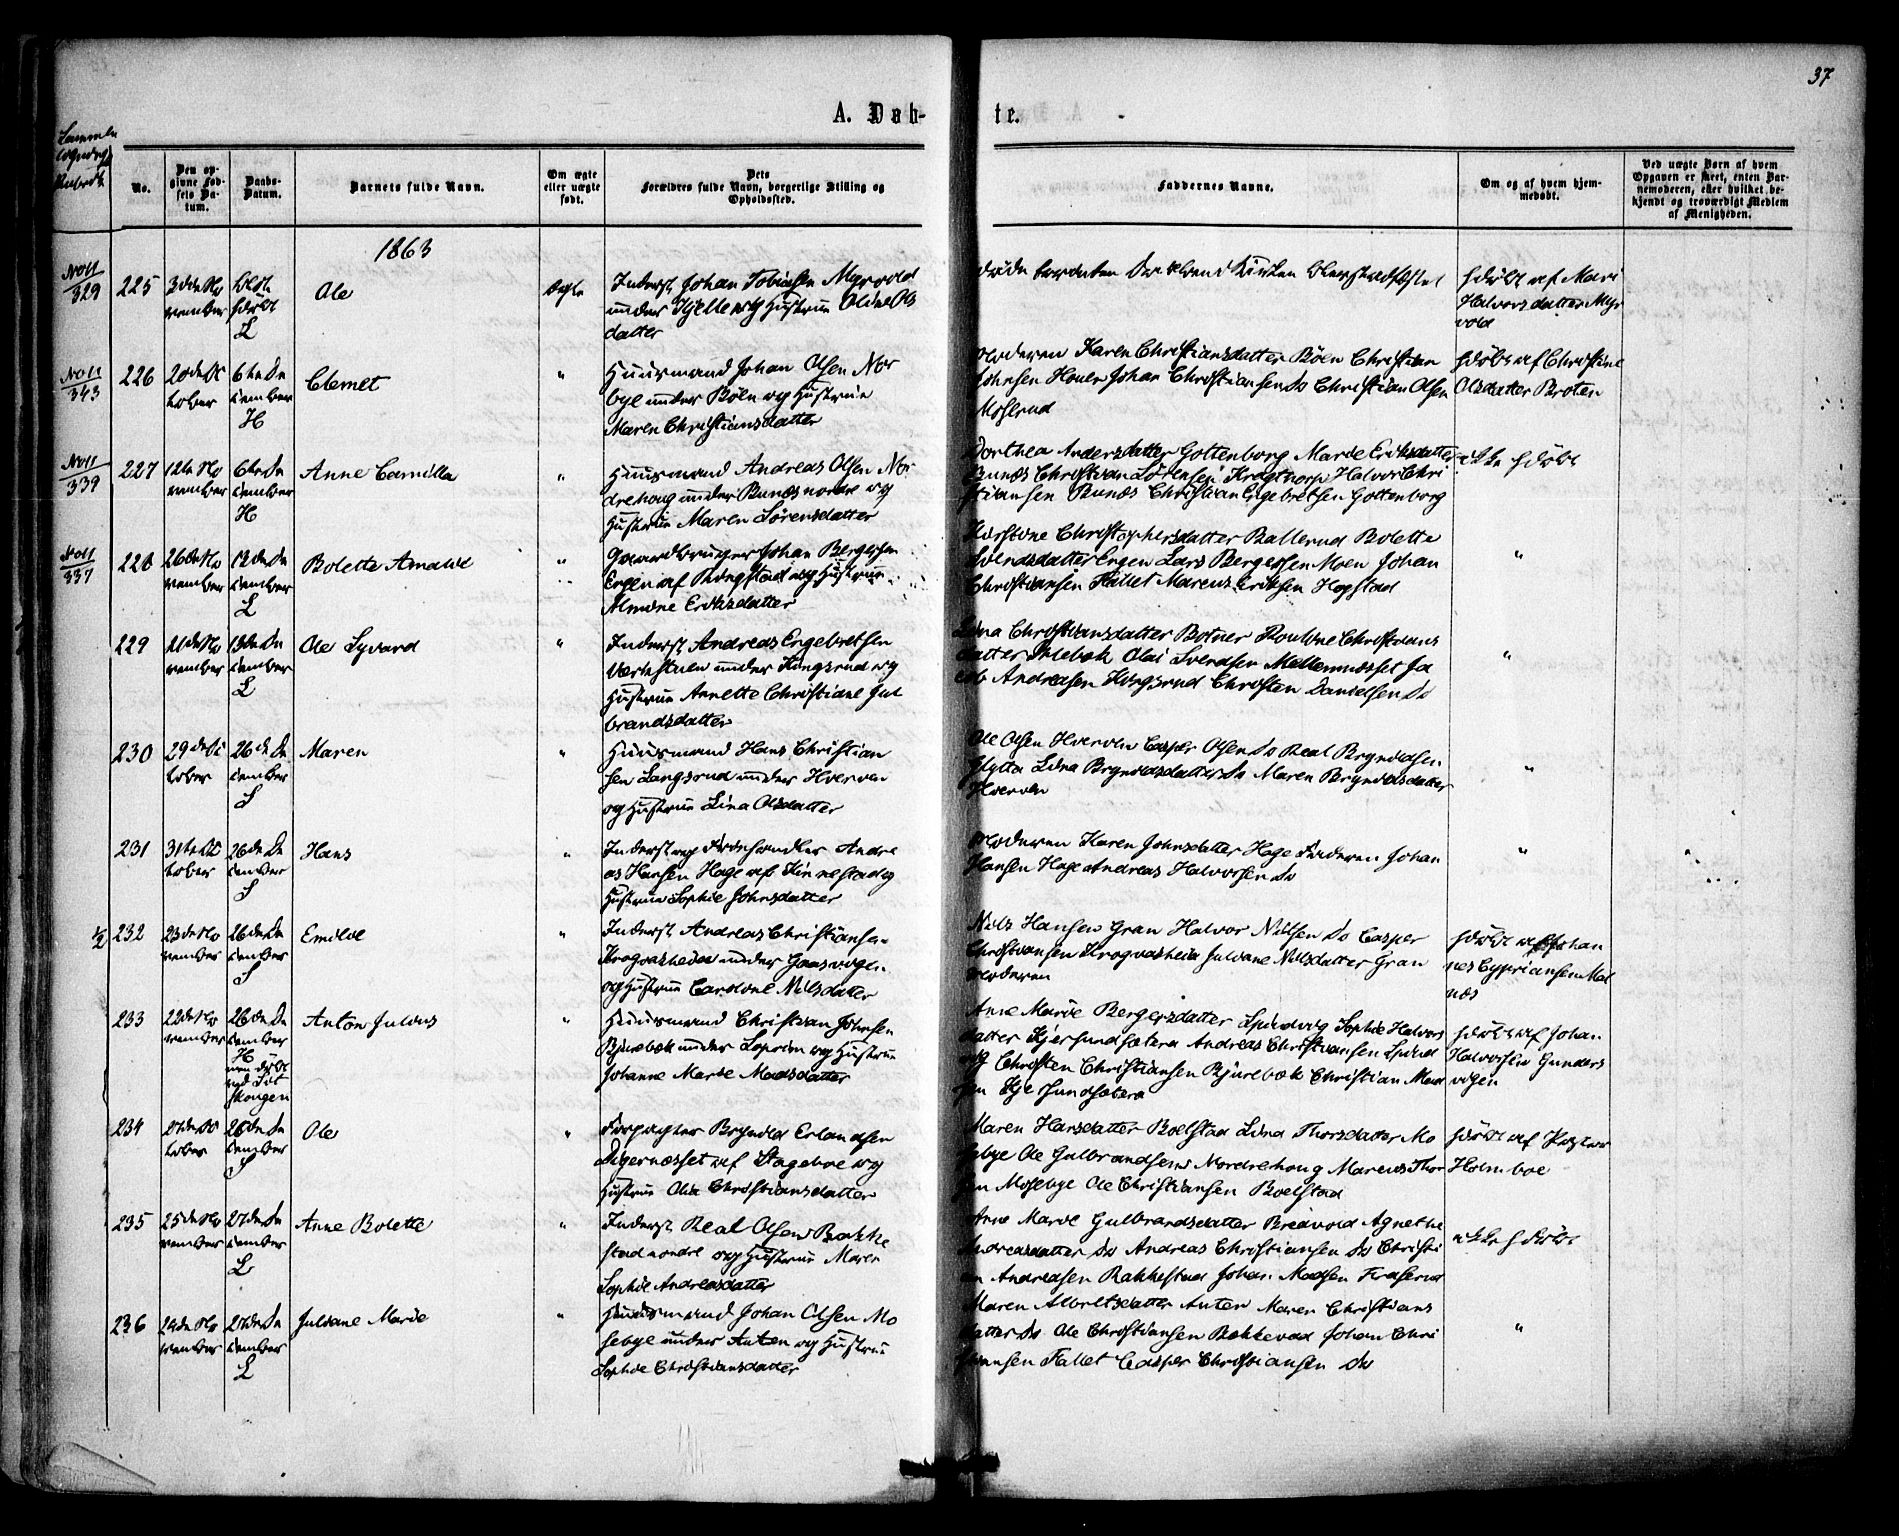 37
A. Døb-
te.
No.
Den op-
givne Fød-
sels Da-
tum.
Daabs-
Datum.
Barnets fulde Navn.
Om ægte
eller uægte
født.
Dets
Forældres fulde Navn, borgerlige Stilling og
Opholdssted.
Faddernes Navne.
Om og af hvem hjem-
medøbt.
Ved uægte Børn af hvem
Opgaven er skeet, enten Bar-
nemoderen, eller hvilket be-
kjendt og troværdigt Medlem
af Menigheden.
1863
No 11
329
225
3die No
vember
hjdøbt
L
Ole
Ægte
Inderst Johan Tobiasen Myrvold
under Kjelle og Hustrue Oline Ols
datter
hjdøbt af Mari
Halvorsdatter Myr
vold
No 11
343
226
20de Oc
tober
6te De
cember
H
Clemet
"
Huusmand Johan Olsen Nor
bye under Böln og Hustrue
Maren Christiansdatter
Moderen Karen Christiansdatter Böen Christian
Johnsen Huuer Johan Christiansen Do Christian Olsen
Moserud
hjdöbt af Christine
Olsdatter Broten
No 11
339
227
12te No
vember
6te De
cember
H
Anne Camilla
"
Huusmand Andreas Olsen Nor
drehoug under Bunæs nordre og
Hustrue Maren Sörensdatter
Dorthea Andersdatter Gottenborg Marie Eriksdatter
Bunæs Christian Sörensen Kragtorp Halvor Chri
stiansen Bunæs Christian Engebretsen Gottenborg
ikke hjdöbt
No 11
337
228
26de No
vember
13de De
cember
L
Bolette Amalie
"
Gaardbruger Johan Bergersen
Engen af Ringstad og Hustrue
Almine Eriksdatter
Christophersdatter Ballerud Bolette
Svendsdatter Engen Lars Bergersen Moen Johan
Christiansen Fallet Marcus Eriksen Hogstad
"
229
21de No
vember
13de De
cember
L
Ole Syvard
"
Inderst Andreas Engebretsen
under Kingsrud og
Hustrue Annette Christiane Gul
brandsdatter
Lina Christiansdatter Botner Pouline Christians
datter Olai Svendsen Mellemnæsset Ja
cob Andreasen Kingsrud Christen Danielsen Do
"
230
29de Oc
tober
26de De
cember
S
Maren
"
Huusmand Hans Christian
sen Langsrud under Hverven
og Hustrue Lina Olsdatter
Ole Olsen Hverven Casper Olsen Do Real Brynildsen
Glytta Lina Brynildsdatter Do Maren Brynildsdatter
Hverven
"
231
31te Oc
tober
26de De
cember
S
Hans
"
Inderst og Andre
as Hansen Hage af Kinnestad og
Hustrue Sophie Johnsdatter
Moderen Karen Johnsdatter Hage Faderen Johan
Hansen Hage Andreas Halvorsen Do
"
232
23de No
vember
26de De
cember
S
Emilie
"
Inderst Andreas Christiansen
Krogvasheia under Gaasvigen
og Hustrue Caroline Nilsdatter
Niels Hansen Gran Halvor Nilsen Do Casper
Christiansen Krogvasheia Juliane Nilsdatter Gran
Moderen
hjdöbt af Johan
nes Cypriansen Mal
næs
233
22de No
vember
26de De
cember
H
men döbt
ved Söt
skougen
Anton Julius
"
Huusmand Christian Johnsen
Bjurebæk under Soprim og Hustrue
Johanne Marie Madsdatter
Anne Marie Bergersdatter Spindvig Sophie Halvors
datter Kjersundsætera Andreas Christiansen Spind
vig Christen Christiansen Bjurebæk Christian Mad
sen Kjersundsætera
hjdöbt af Johan
Halvorsen Gunders
vigen
234
27de Oc
tober
26de De
cember
S
Ole
"
Forpagter Brynild Erlandsen
Digernæsset af Stageboe og
Hustrue Olia Christiansdatter
Maren Hansdatter Boelstad Lina Thorsdatter Mo
sebye Ole Gulbrandsen Nordrehoug Marcus Thor
sen Mosebye Ole Christiansen Boelstad
hjdöbt af Pastor
Holmboe
235
25de No
vember
27de De
cember
L
Anne Bolette
"
Inderst Real Olsen Bakke
stad nordre og Hustrue Maren
Sophie Andreasdatter
Anne Marie Gulbrandsdatter Breivold Agnethe
Andreasdatter Do Andreas Christiansen Do Christi
an Andreasen Bakkestad Johan Madsen Fraserud
ikke hjdöbt
236
29de No
vember
27de De
cember
L
Juliane Marie
"
Huusmand Johan Olsen Mo
sebye under Anten og Hustrue
Sophie Christiansdatter
Maren Albretsdatter Anten Maren Christians
datter Do Ole Christiansen Bekkevad Johan Chri
stiansen Fallet Casper Christiansen Do
"